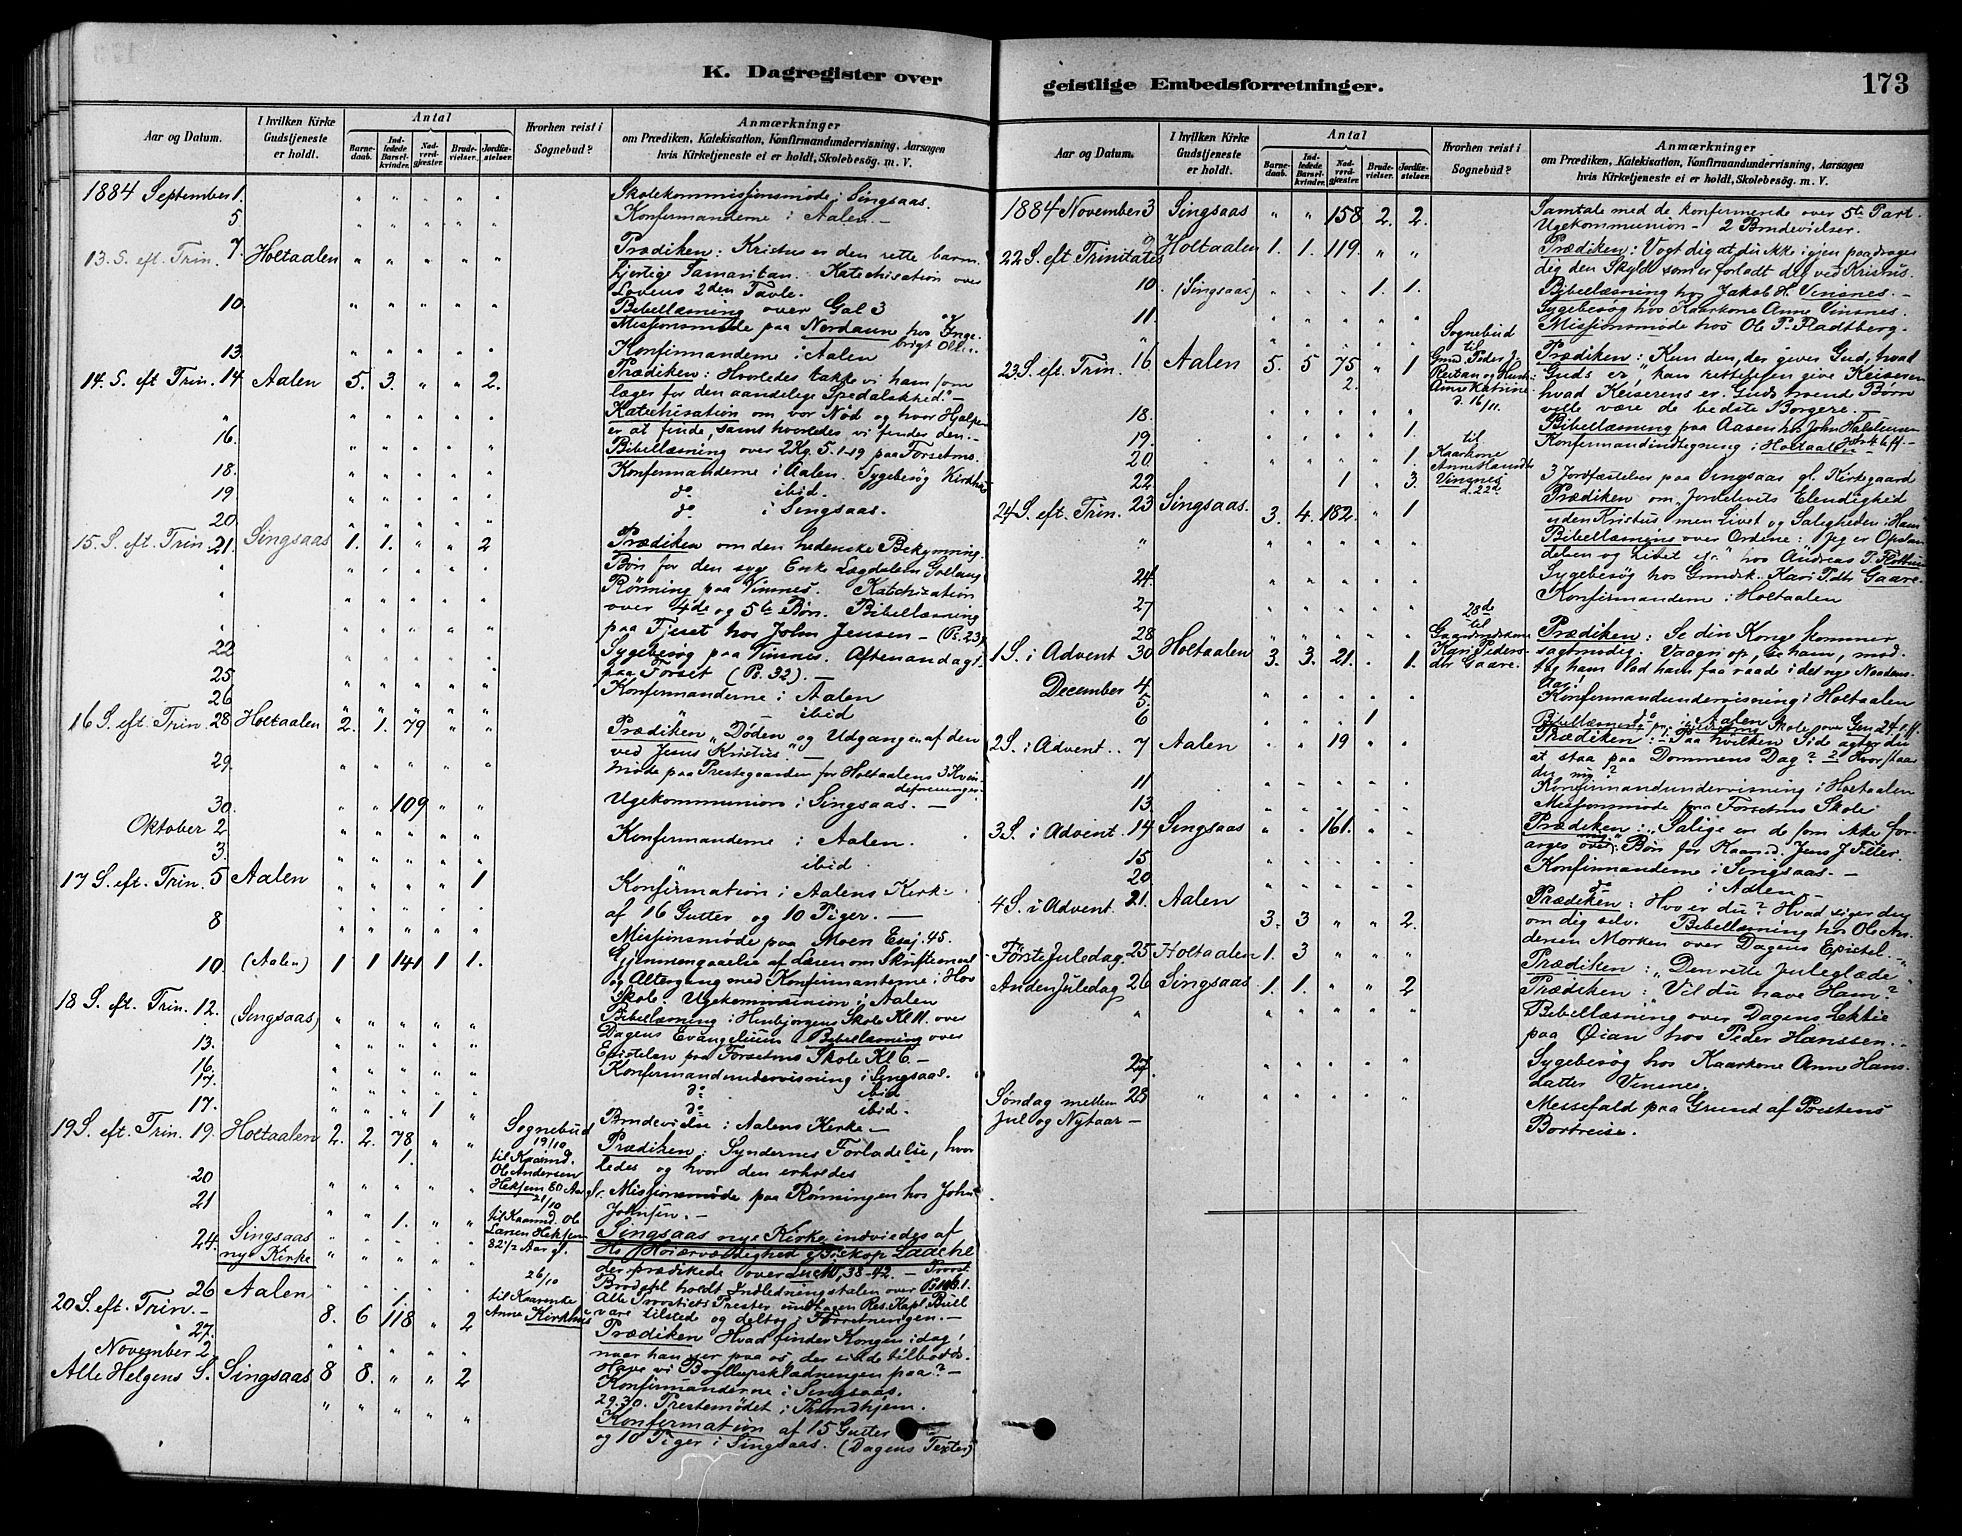 K. Dagregister over
Aar og Datum.
I hvilken Kirke Gudstjeneste er holdt.
Antal
Barnedaab.
Indledede Barselkvinder.
Nadverdgjæster.
Brudevielser.
Jordfæstelser.
Hvorhen reist i Sognebud?
Anmærkninger
om Prædiken, Katekisation, Konfirmandundervisning, Aarsagen
hvis Kirketjeneste ei er holdt, Skolebesøg. m. V.
1884 September 1. Skolekommissjonsmøde i Singsaas.
5 Konfirmanderne i Aalen –
13. S. eft. Trin. 7. Holtaalen Prædiken: Kristus er den rette barm
hjertige Samaritan. Katechisation over
Lovens 2den Tavle.
10. Bibellæsning over Gal 3 og
Missjonsmøde paa Nordaun hos Inge
brigt Ols.
13. Konfirmanderne i Aalen
14. S. eft Trin. 14 Aalen 5. 3. " " 2. Prædiken: Hvorledes takke vi ham som
læger for den aandelige Spedalskhed. –
Katechisation om vor Nød og hvor Hjælpen
er at finde, samt hvorledes vi finder den. –
16. Bibellæsning over 2 Kg. 5. 1-19 paa Forsetmo.
18. Konfirmanderne i Aalen. Sygebesøg Kirkhus
19 do. ibid.
20. do. i Singsaas.
15. S. eft. Trin. 21. Singsaas 1. 1. " " 2 Prædiken om den hedenske Bekymring.
Bøn for den syge Enke
Rønning paa Vinsnes. Katechization
over 4de og 5te Bøn. Bibellæsning
paa Fjeset hos John Jensen – (Ps. 23).
22 Sygebesøg paa Vinsnes. Aftenandagt
paa Forset (Ps. 32). –
25 Konfirmanderne i Aalen
26 " ibid
16 S. eft. Trin. 28 Holtaalen 2. 1. 79 Prædiken „Døden og Udgangen af den
ved Jesus Kristus." –
29. Møde paa Prestegaarden for Holtaalens 3 Kvin
deforeninger.
30. 109 Ugekommunion i Singsaas. –
Oktober 2 Konfirmanderne i Aalen.
3. " ibid
17 S. eft. Trin. 5 Aalen 1 Konfirmation i Aalens Kirke
af 16 Gutter og 10 Piger. –
8 Missjonsmøde paa Moen Esaj. 45.
10. (Aalen) 1 1 141 1 1. Gjennemgaaelse af Læren om Skriftemaal
og Altergang med Konfirmanterne i Hov
Skole. Ugekommunion i Aalen
18 S. eft. Trin. 12. (Singsaas) Bibellæsning i Henbjørgens Skole Kl 11. over
Dagens Evangelium. Bibellæsning over
13. Epistelen paa Forsetmo Skole Kl 6 –
16. Konfirmandundervisning i Singsaas.
17. do. ibid
17. 1 do. ibid.
Brudevielse i Aalens Kirke –
19 S. eft. Trin. 19. Holtaalen 2. 2. 78 Sognebud
19/10
til Kaarmd.
Ole Andersen
Heksem 80 Aar gl. Prædiken: Syndernes Forladelse, hvor
ledes og hvor den erholdes
20 1.
21 1. 21/10
til Kaarmd. Ole
Larsen Heksem
82 1/2 Aar gl. Missjonsmøde paa Rønningen hos John
Johnsen. –
24. Singsaas
nye Kirke Singsaas nye Kirke indviedes af
Hs Høiærværdighed Biskop Laache
der prædikede over Luc 10, 38-42. – Provst
Brodahl holdt Indledningstalen over Ps
Alle Provstiets Prester undtagen Res. Kapl. Bull
vare tilstede og deltog i Forretningen. –
26 Aalen
20 S. eft. Trin. – 8. 6 118 " 2 26/10
til Kaarenke
Anne Kirkhus Prædiken Hvad finder Kongen idag,
naar han ser paa os, der sidde tilbords.
Have vi Bryllupsklædningen paa? –
27. Konfirmanderne i Singsaas.
29. 30. Prestemødet i Trondhjem.
November 2
Alle Helgens S. Singsaas 8 8. " " 2 Konfirmation af 15 Gutter
og 10 Piger i Singsaas. (Dagens Texter)
geistlige Embedsforretninger.
173
Aar og Datum.
I hvilken Kirke Gudstjeneste er holdt.
Antal
Barnedaab.
Indledede Barselkvinder.
Nadverdgjæster.
Brudevielser.
Jordfæstelser.
Hvorhen reist i Sognebud?
Anmærkninger
om Prædiken, Katekisation, Konfirmandundervisning, Aarsagen
hvis Kirketjeneste ei er holdt, Skolebesøg. m. V.
1884 November 3 Singsaas " " 158 2. 2. Samtale med de konfirmerede over 5te Part.
Ugekommunion – 2 Brudevielser.
22 S. eft Trinitatis 9 Holtaalen 1. 1. 119. " " Prædiken: Vogt dig at du ikke igjen paadrager
dig den Skyld som er forladt dig ved Kristus.
10. (Singsaas) 1. 1. Bibellæsning hos Jakob H. Vinsnes. –
Sygebesøg hos Kaarkone Anne Vinsnes.
11. Missjonsmøde hos Ole P. Radtberg.
23 S. eft. Trin. 16 Aalen 5. 5 75 " 1 Sognebud
til
Gmd. Peder J.
Rustan og Hustr.
Anne Katrine
d. 16/11. Prædiken: Kun den, der giver Gud, hvad
Guds er, kan rettelig give Keiseren
hvad Keiserens er. Guds troende Børn
ville være de bedste Borgere.
2.
18. Bibellæsning paa Aasen hos John Halstensen
19. 1. Konfirmandindtegning i Holtaalen
20 1. til
Kaarkone
Anne
Vinsnes
d. 22d.
22 1 " 3. 3 Jordfæstelser paa Singsaas gl. Kirkegaard
24 S. eft. Trin. 23 Singsaas. 3. 4. 182. " 1 Prædiken om Jordelivets Elendighed
uden Kristus men Livet og Saligheden i Ham
Bibellæsning over Ordene: „Jeg er Opstan
delsen og Livet etc" hos Andreas T. Flotten
24. Sygebesøg hos Grmdsk. Kari Pedts Gaare.
27 Konfirmanderne i Holtaalen
28 28de
til
Gaardmdskone
Kari Peders
dtr Gaare.
1 S. i Advent 30 Holtaalen 3. 3. 21. . 1. Prædiken: Se din Konge kommer
sagtmodig. Vaagn op, se ham, mod
tag ham. Lad ham faa raade i det nye Naadens
Aar!
December 4. Konfirmandundervisning i Holtaalen
5. do i Aalen
6 1 Bibellæsning paa Skole over
2 S. i Advent. . 7 Aalen 19 Prædiken: Paa hvilken Side agter du
at staa paa Dommens Dag? Hvor staar
du nu?
11 Konfirmandundervisning i Holtaalen
13. Missjonsmøde paa Forsetmo Skole
3 S. i Advent. 14 Singsaas 161. Prædiken: „Salige er de som ikke for
arges over mig." Bøn for Kaarmd. Jens J Filter
15 Konfirmanderne i Singsaas. –
20 do i Aalen –
4 S. i Advent. 21. Aalen 3. 3 " " 2. Prædiken: Hvo er du? Hvad siger du
om dig selv. Bibellæsning hos Ole An
dersen Morken over Dagens Epistel. –
Første Juledag 25 Holtaalen 1. 3 Prædiken: „Den rette Juleglæde"
Anden Juledag 26 Singsaas 1. 1. " " 2 Prædiken: „Vil du have Ham?
Bibellæsning over Dagens Lektie
paa Øian hos Peder Hanssen. –
27 Sygebesøg hos Kaarkone Anne Hans
datter Vinsnes.
Søndag mellem 28 " Messefald paa Grund af Prestens
Jul og Nytaar – Bortreise.